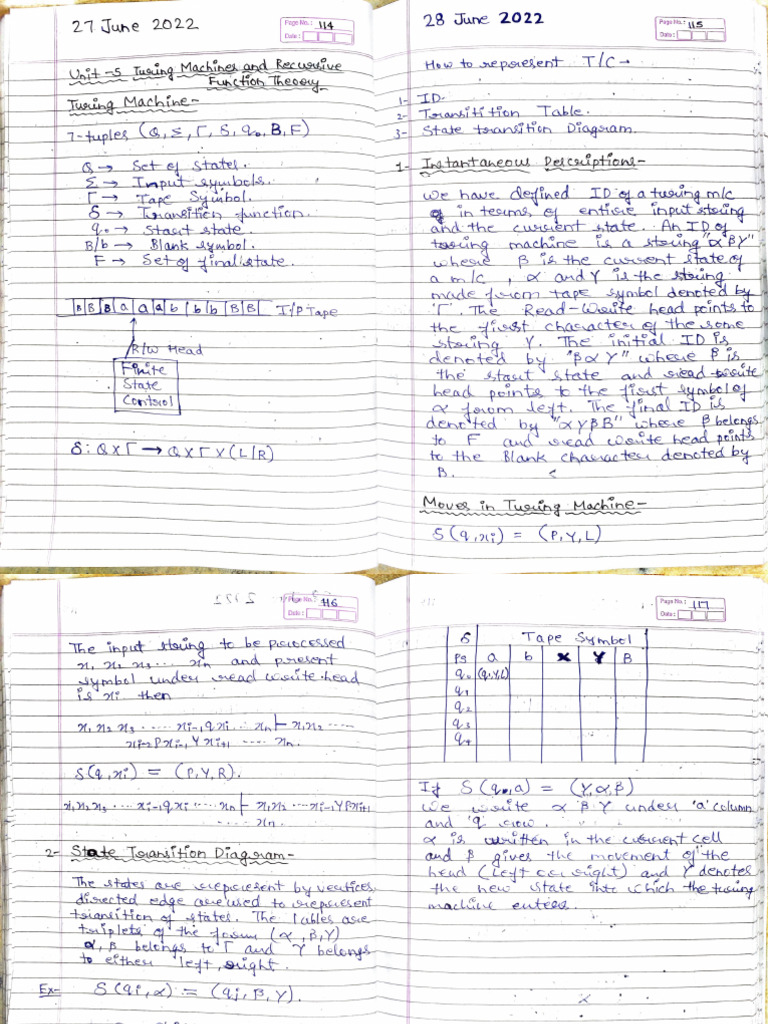 27 June 2022
Page No.: 114
Date:
Unit-5 Turing Machines and Recursive
Function Theory
Turing Machine-
7-tuples (Q, Σ, Γ, δ, q₀, B, F)
Q → Set of states.
Σ → Input symbols.
Γ → Tape Symbol.
δ → Transition function.
q₀ → Start state.
B/b → Blank symbol.
F → Set of final state.
B B B a a a b b b B B I/P Tape
R/W Head
Finite
State
Control
δ: Q×Γ → Q×Γ×(L/R)
28 June 2022
Page No.: 115
Date:
How to represent T/C →
1- ID.
2- Transitition Table.
3- State transition Diagram.
1- Instantaneous Descriptions-
We have defined ID of a turing m/c
in terms of entire input string
and the current state. An ID of
turing machine is a string "αβγ"
where β is the current state of
a m/c, α and γ is the string
made from tape symbol denoted by
'Γ'. The Read-Write head points to
the first character of the some
string γ. The initial ID is
denoted by "βαγ" where β is
the start state and read write
head points to the first symbol of
α from left. The final ID is
denoted by "αγβB" where β belongs
to F and read write head points
to the Blank character denoted by
B.
Moves in Turing Machine-
δ(q, xi) = (P, Y, L)
Page No.: 116
Date:
The input string to be processed
x₁ x₂ x₃ .... xn and present
symbol under read write head
is xi then
x₁ x₂ x₃ ..... xi-1 q xi ... xn ⊢ x₁ x₂ .....
xi-2 P xi-1 Y xi+1 ..... xn.
δ(q, xi) = (P, Y, R).
x₁ x₂ x₃ ... xi-1 q xi ..... xn ⊢ x₁ x₂ ... xi-1 Y P xi+1
..... xn.
2- State Transition Diagram-
The states are represent by vertices
directed edge are used to represent
transition of states. The lables are
triplets of the form (α, β, γ)
α, β belongs to Γ and γ belongs
to either left, right.
Ex- δ(qi, α) = (qj, β, γ).
Page No.: 117
Date:
δ Tape Symbol
PS a b X Y B
q₀ (q, Y, L)
q₁
q₂
q₃
q₄
If δ(q, a) = (γ, α, β)
we write α β γ under 'a' column
and 'q' row.
α is written in the current cell
and β gives the movement of the
head (left or right) and γ denotes
the new state into which the turing
machine enters.